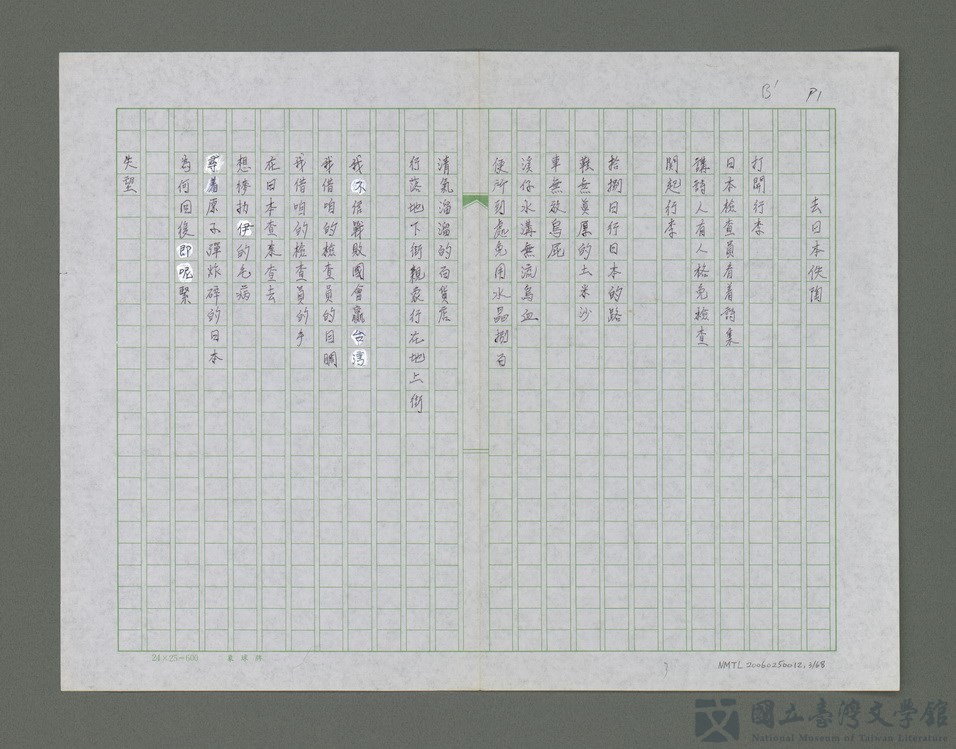 B' P1
去日本佚陶
打開行李
日本檢查員看着詩集
講詩人有人格免檢查
関起行李
拾捌日行日本的路
鞋無黃原的土米沙
車無放烏屁
溪仔水溝無流烏血
便所到處免用水晶捌百
清氣溜溜的百貨店
行落地下街親象行在地上街
我不信戰敗國會贏台灣
我借咱的檢查員的目睭
我借咱的檢查員的手
在日本查來查去
想捧扐伊的毛病
尋着原子彈炸碎的日本
為何回復即呢緊
失望
24×25=600
NMTL20060250012.1/68
國立臺灣文學館
National Museum of Taiwan Literature